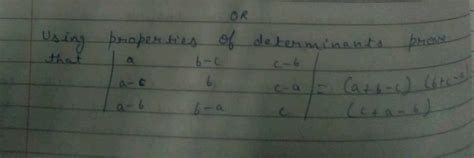 OR
Using properties of determinants prove
that | a b-c c-b |
| a-c b c-a | = (a+b-c) (b+c-a)
| a-b b-a c | (c+a-b)